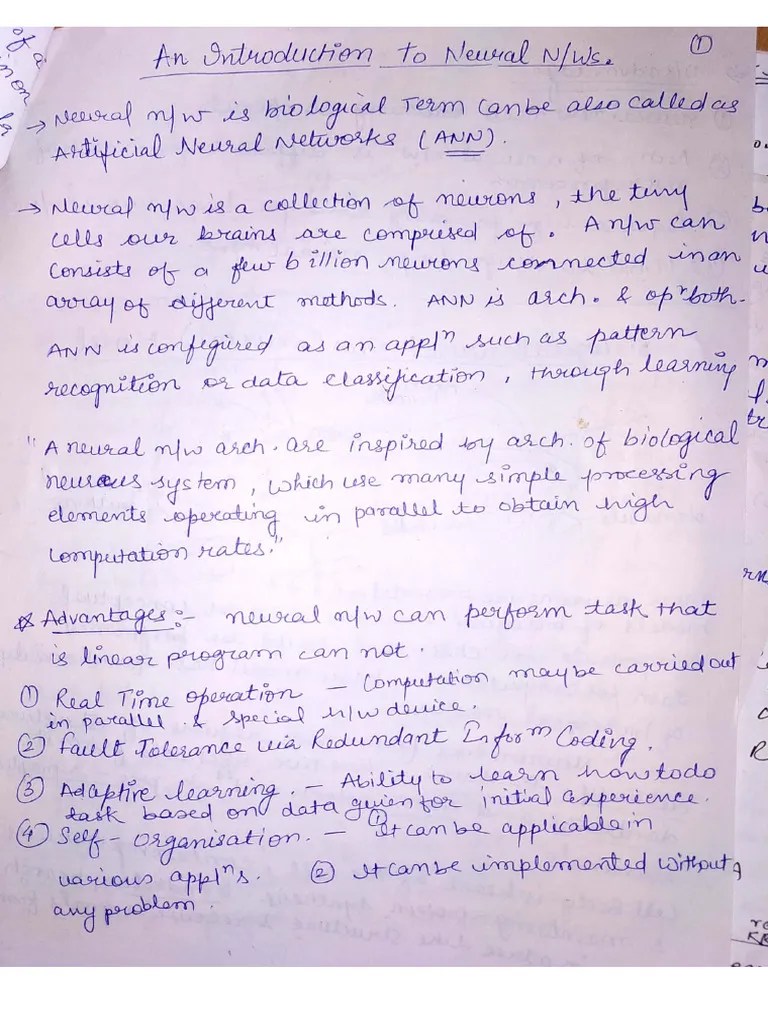 An Introduction to Neural N/Ws. ①
→ Neural n/w is biological Term canbe also called as
Artificial Neural Networks (ANN).
→ Neural n/w is a collection of neurons, the tiny
cells our brains are comprised of. A n/w can
consists of a few billion neurons connected in an
array of different methods. ANN is arch. & opⁿ both.
ANN is configured as an applⁿ such as pattern
recognition or data classification, through learning
"A neural n/w arch. are inspired by arch. of biological
system, which use many simple processing
elements operating in parallel to obtain high
computation rates."
* Advantages:- neural n/w can perform task that
is linear program can not.
① Real Time operation - Computation maybe carried out
in parallel & special h/w device.
② Fault Tolerance via Redundant Informⁿ Coding.
③ Adaptive learning. - Ability to learn how to do
task based on data given for initial experience.
④ Self-Organisation. - ① It can be applicable in
various applⁿs. ② It canbe implemented without
any problem.